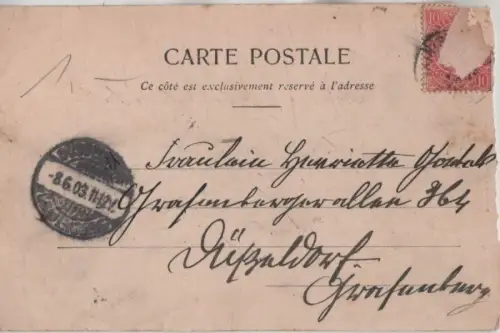 CARTE POSTALE
Ce côté est exclusivement reservé à l'adresse
10
10
-8.6.09.11-12
Fräulein Henriette
Grafenbergerallee 364
Düsseldorf
Grafenberg